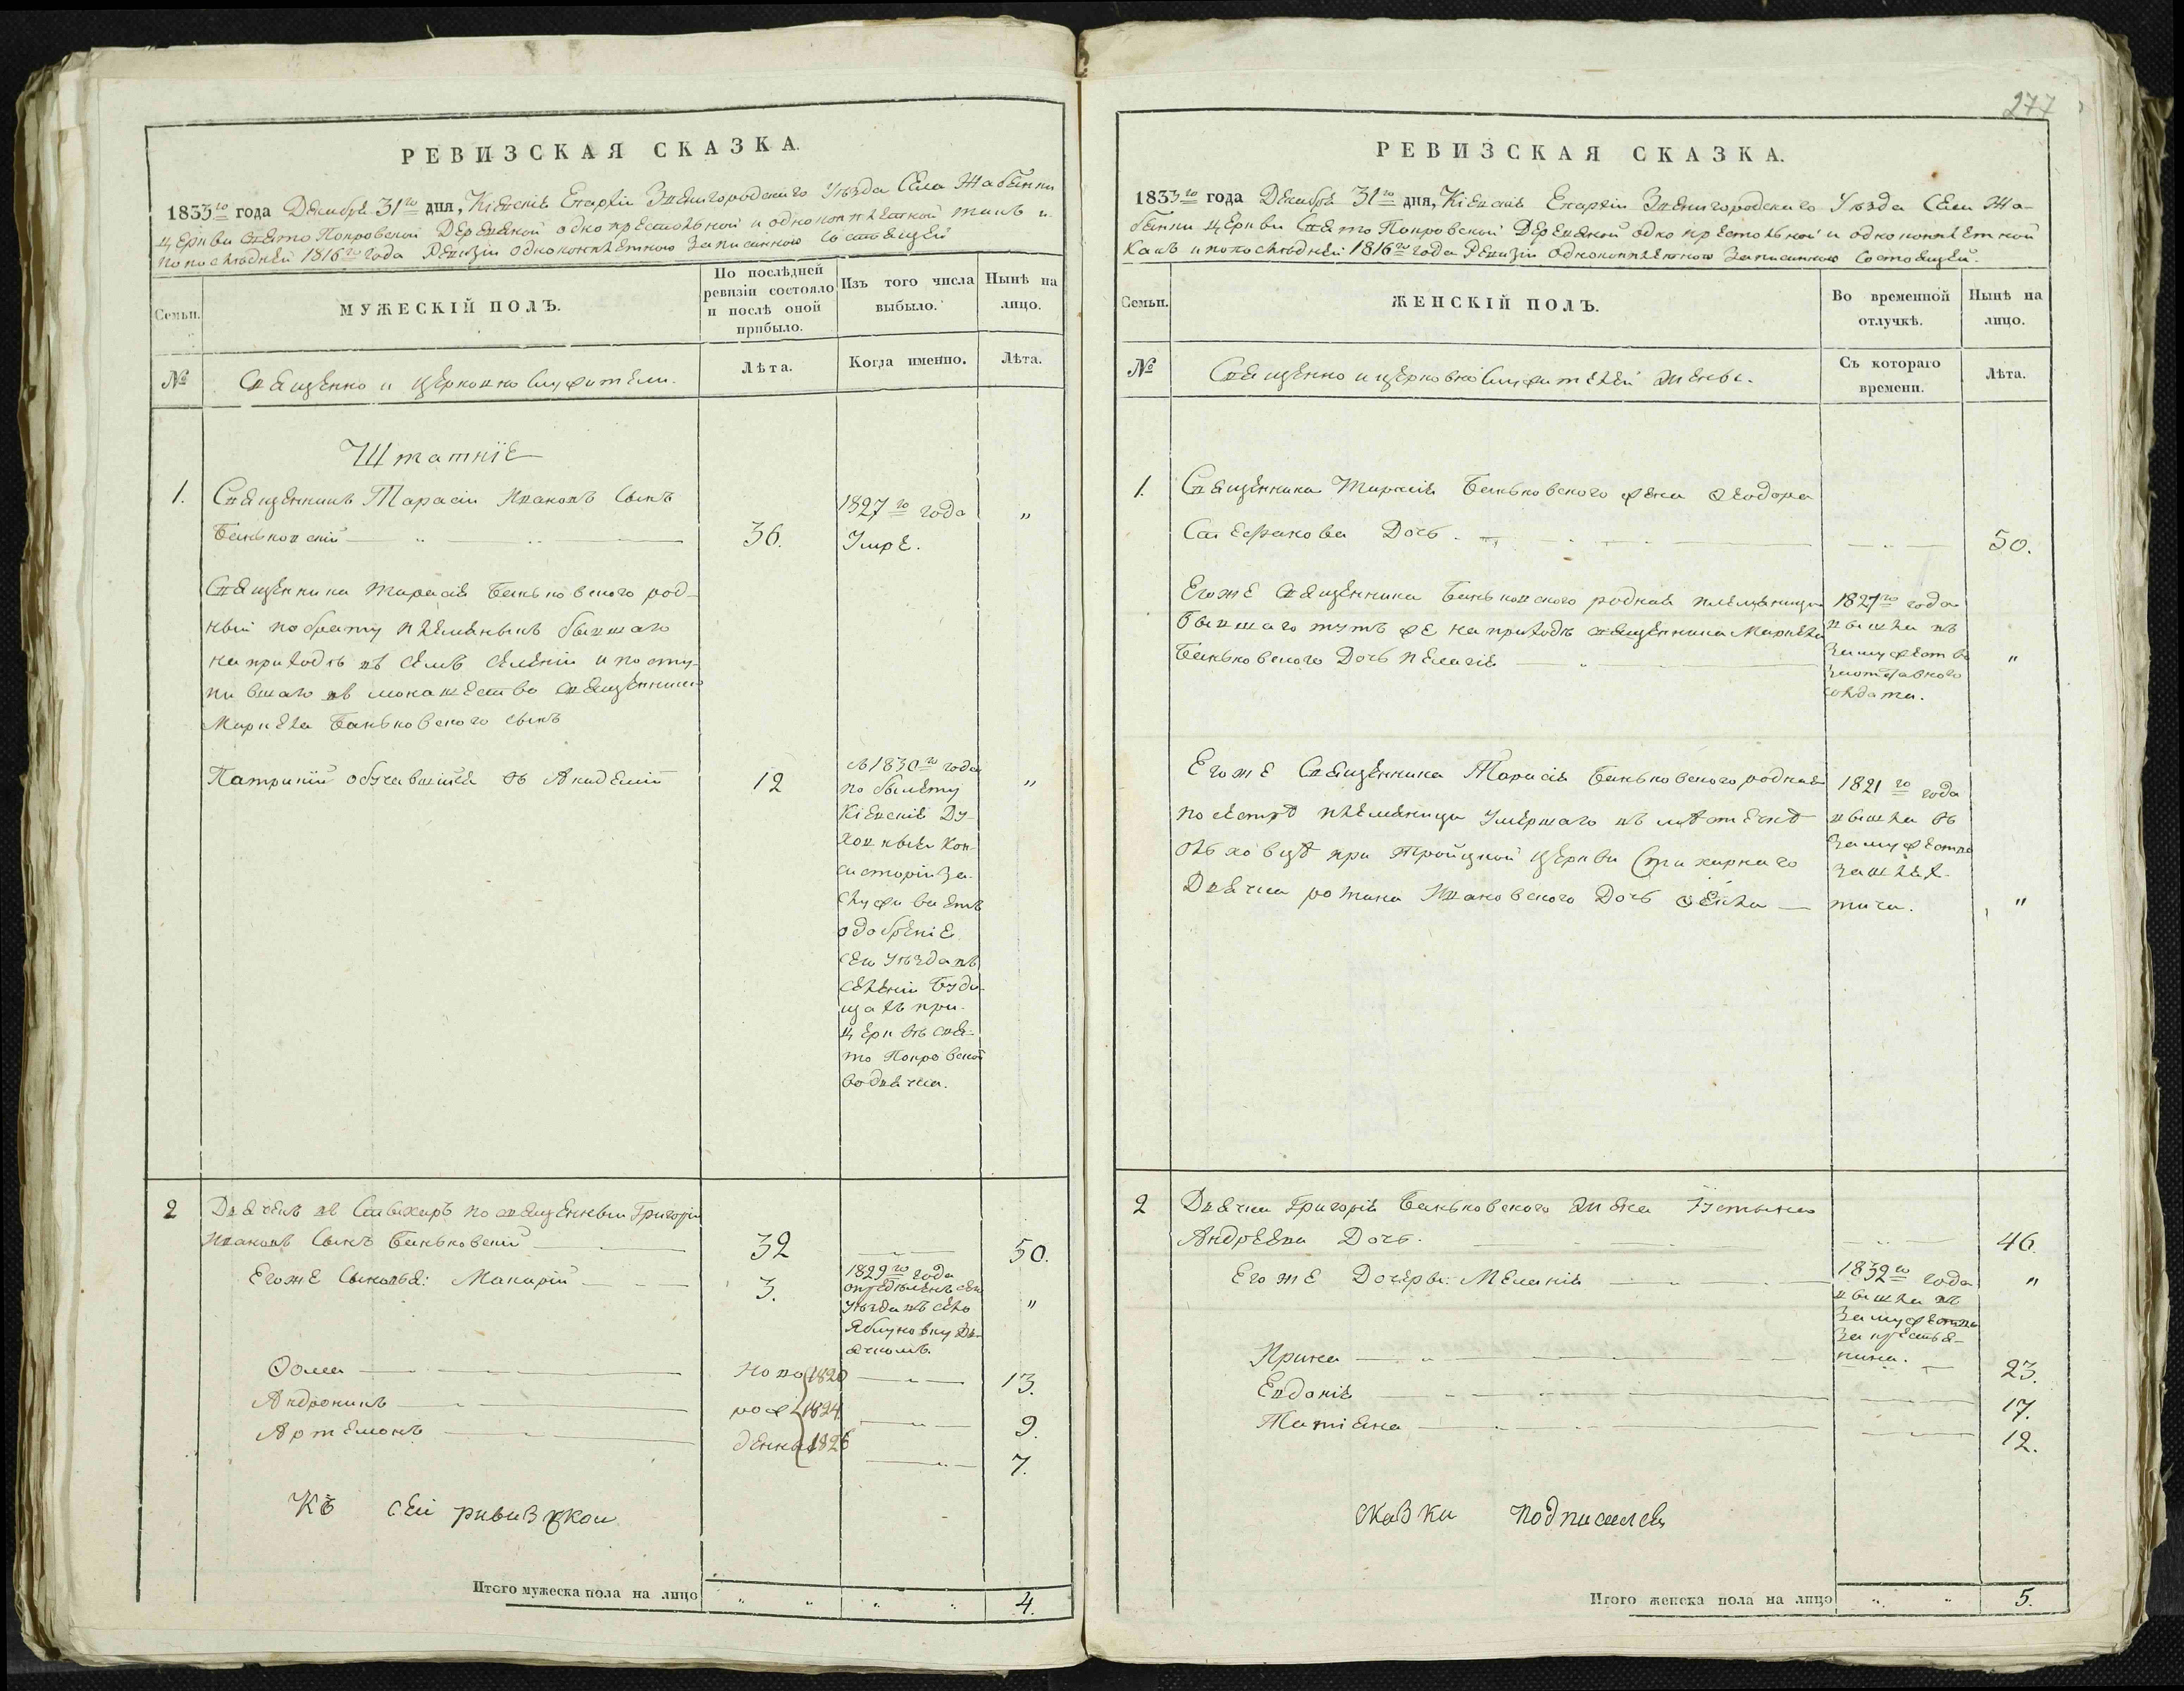 277
РЕВИЗСКАЯ СКАЗКА.
1833го года Декабря 31го дня, Кіевскія Епархіи Звенигородскаго Уезда Села Жабянки
церкви Свято Покровской Деревяной одно престольной и однокомплетной такъ и
по последней 1816го года Ревизіи однокомплетною Записанною Состоящей
Семьи.
МУЖЕСКІЙ ПОЛЪ.
По послѣдней ревизіи состояло и послѣ оной прибыло.
Изъ того числа выбыло.
Нынѣ на лицо.
№
Священно и церковно служители.
Лѣта.
Когда именно.
Лѣта.
Штатніе
1. Священникъ Тарасій Ивановъ Сынъ
Баньковскій 36. 1827го года Умре. "
Священника Тарасія Баньковского род-
ный по брату племяныкъ бывшаго
на приходѣ въ семъ селеніи и посту-
пившаго въ монашество священника
Маркела Баньковского сынъ
Патрикій обучавшійся въ Академіи 12 "
съ 1830го года
по былету
Кіевскія Ду-
ховныя Кон-
систоріи За-
служиваетъ
одобреніе
сего уѣзда въ
селеніи Буди-
щахъ при
церквѣ свя-
то Покровской
водячка.
2 Дячекъ въ Стыхаръ посвященный Григорій
Ивановъ Сынъ Баньковскій 32 50.
Егоже Сыновья: Макарій 3. "
1829го года
определенъ сего
уѣзда въ село
Яблуновку дя-
ячкомъ.
Ѳома Ново 1820 13.
Андроникъ рож 1824 9.
Артемонъ денны 1826 7.
Къ сей ривизкои
Итого мужеска пола на лицо 4.
РЕВИЗСКАЯ СКАЗКА.
1833го года Декабря 31го дня, Кіевскія Епархіи Звенигородскаго Уѣзда Села Жа-
бянки церкви Свято Покровской Деревяной одно престольной и однокомплетной
Какъ и по последней 1816го года Ревизіи однокомплетною Записанною Состоящей.
Семьи.
ЖЕНСКІЙ ПОЛЪ.
Во временной отлучкѣ.
Нынѣ на лицо.
№
Священно и церковно служителей жены.
Съ котораго времени.
Лѣта.
1. Священника Тарасія Баньковского жена Ѳеодора
Дочь. 50.
Егоже Священника Баньковского родная племяница
бывшаго тутъ же на приходѣ священника Маркела
Баньковского Дочь Пелагія "
1827го года
вышла въ
замужество
за отставного
солдата.
Егоже Священника Тарасія Баньковского родная
по сестрѣ племяница Умершаго въ мѣстечкѣ
Ольховцѣ при Тройцкой церкви Стихарнаго
Дячка романа Ивановского Дочь Ѳекла "
1821го года
вышла въ
замужество
за шлях-
тича.
2 Дячка Григорія Баньковского жена Іустына
Андреева Дочь. 46.
Его же Дочеры: Меланія "
1832го года
вышла въ
замужество
за крестья-
нина.
Ирина 23.
Евдокія 17.
Татіяна 12.
сказки подписался
Итого женска пола на лицо 5.